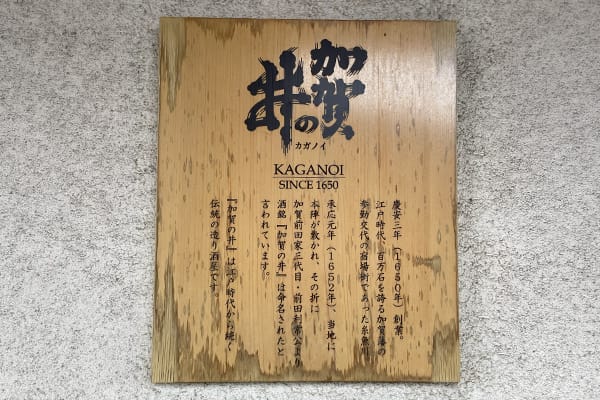 加賀の井
カガノイ
KAGANOI
SINCE 1650
慶安三年（1650年）創業。
江戸時代、百万石を誇る加賀藩の
参勤交代の宿場街であった糸魚川
承応元年（1652年）、当地に
本陣が敷かれ、その折に
加賀前田家三代目・前田利常公より
酒銘『加賀の井』は命名されたと
言われています。
『加賀の井』は江戸時代から続く
伝統の造り酒屋です。